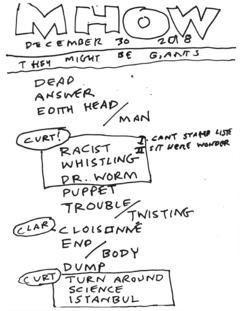 MHOW
DECEMBER 30 2018
THEY MIGHT BE GIANTS
DEAD
ANSWER
EDITH HEAD
/MAN
CURT!
I CAN'T STAND LISTE
RACIST
II SIT HERE WONDER
WHISTLING
DR. WORM
PUPPET
TROUBLE
/TWISTING
CLAR CLOISONNÉ
END
/BODY
DUMP
CURT TURN AROUND
SCIENCE
ISTANBUL